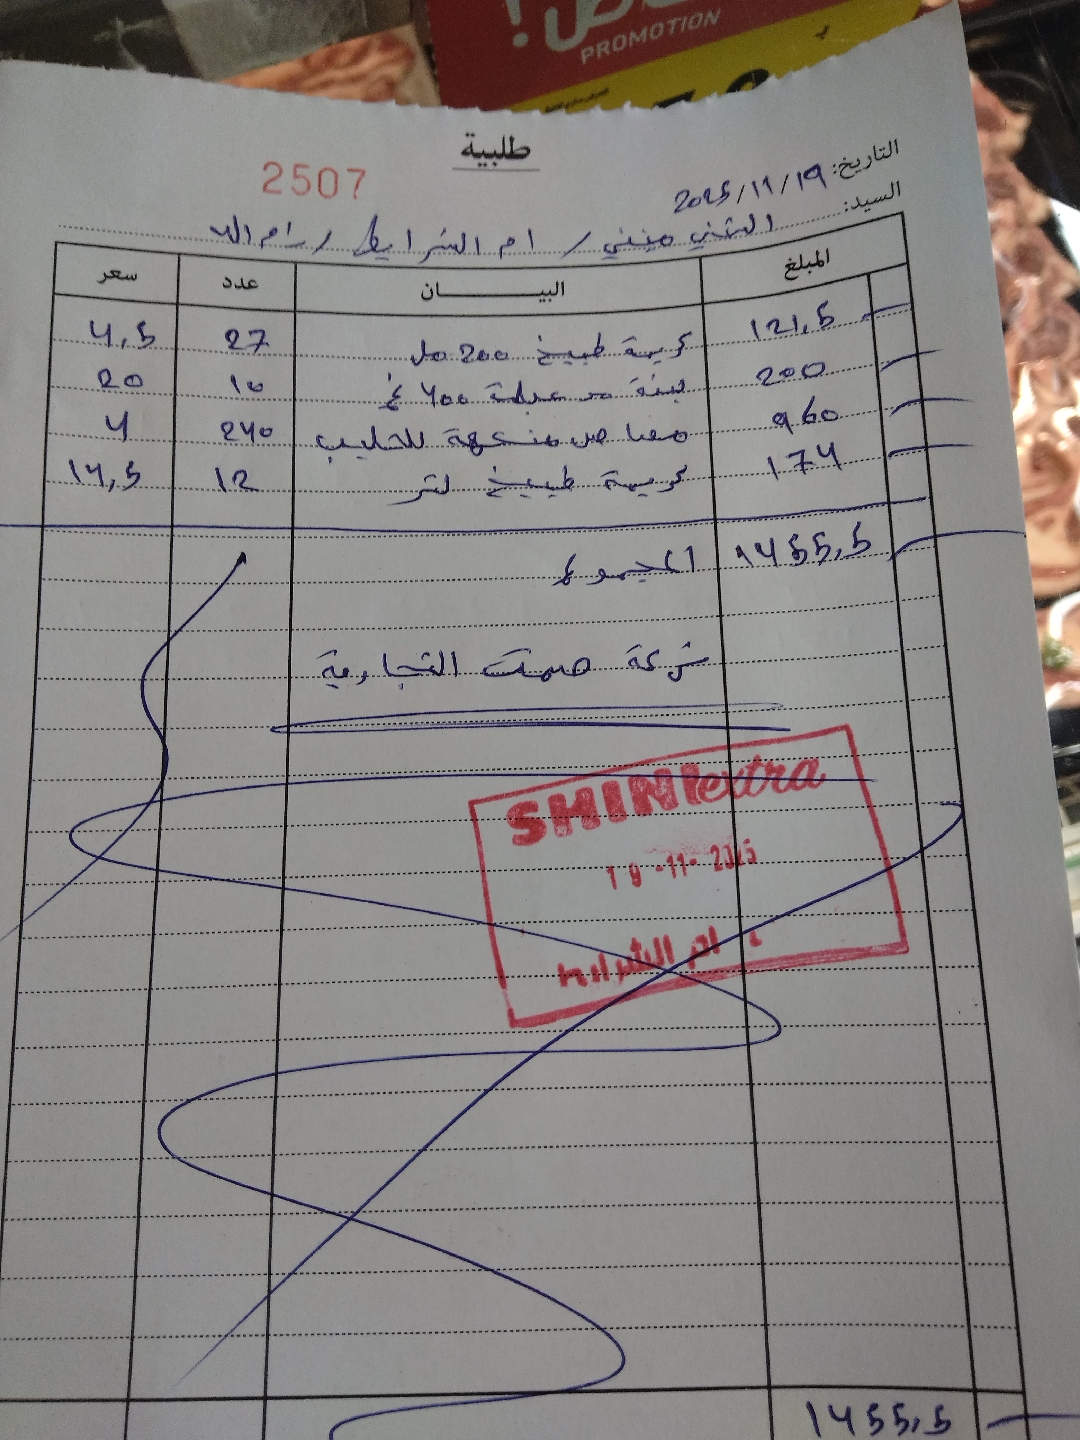 PROMOTION
طلبية
2507
التاريخ: 2025/11/19
السيد: الشني ميني / ام الشرايط / رام الله
المبلغ البيان عدد سعر
121,5 كريمة طبيخ 200 مل 27 4,5
200 لبنة علبة 400 غ 10 20
960 مصاصن منكهة للحليب 240 4
174 كريمة طبيخ لتر 12 14,5
1455,5 المجموع
شركة صمت التجارية
SHINI extra
19-11-2025
ام الشرايط
1455,5